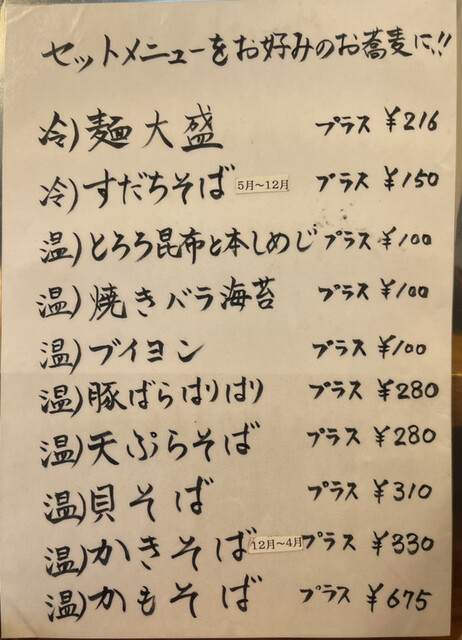 セットメニューをお好みのお蕎麦に!!
冷)麺大盛 プラス ¥216
冷)すだちそば 5月〜12月 プラス ¥150
温)とろろ昆布と本しめじ プラス ¥100
温)焼きバラ海苔 プラス ¥100
温)ブイヨン プラス ¥100
温)豚ばらはりはり プラス ¥280
温)天ぷらそば プラス ¥280
温)貝そば プラス ¥310
温)かきそば 12月〜4月 プラス ¥330
温)かもそば プラス ¥675